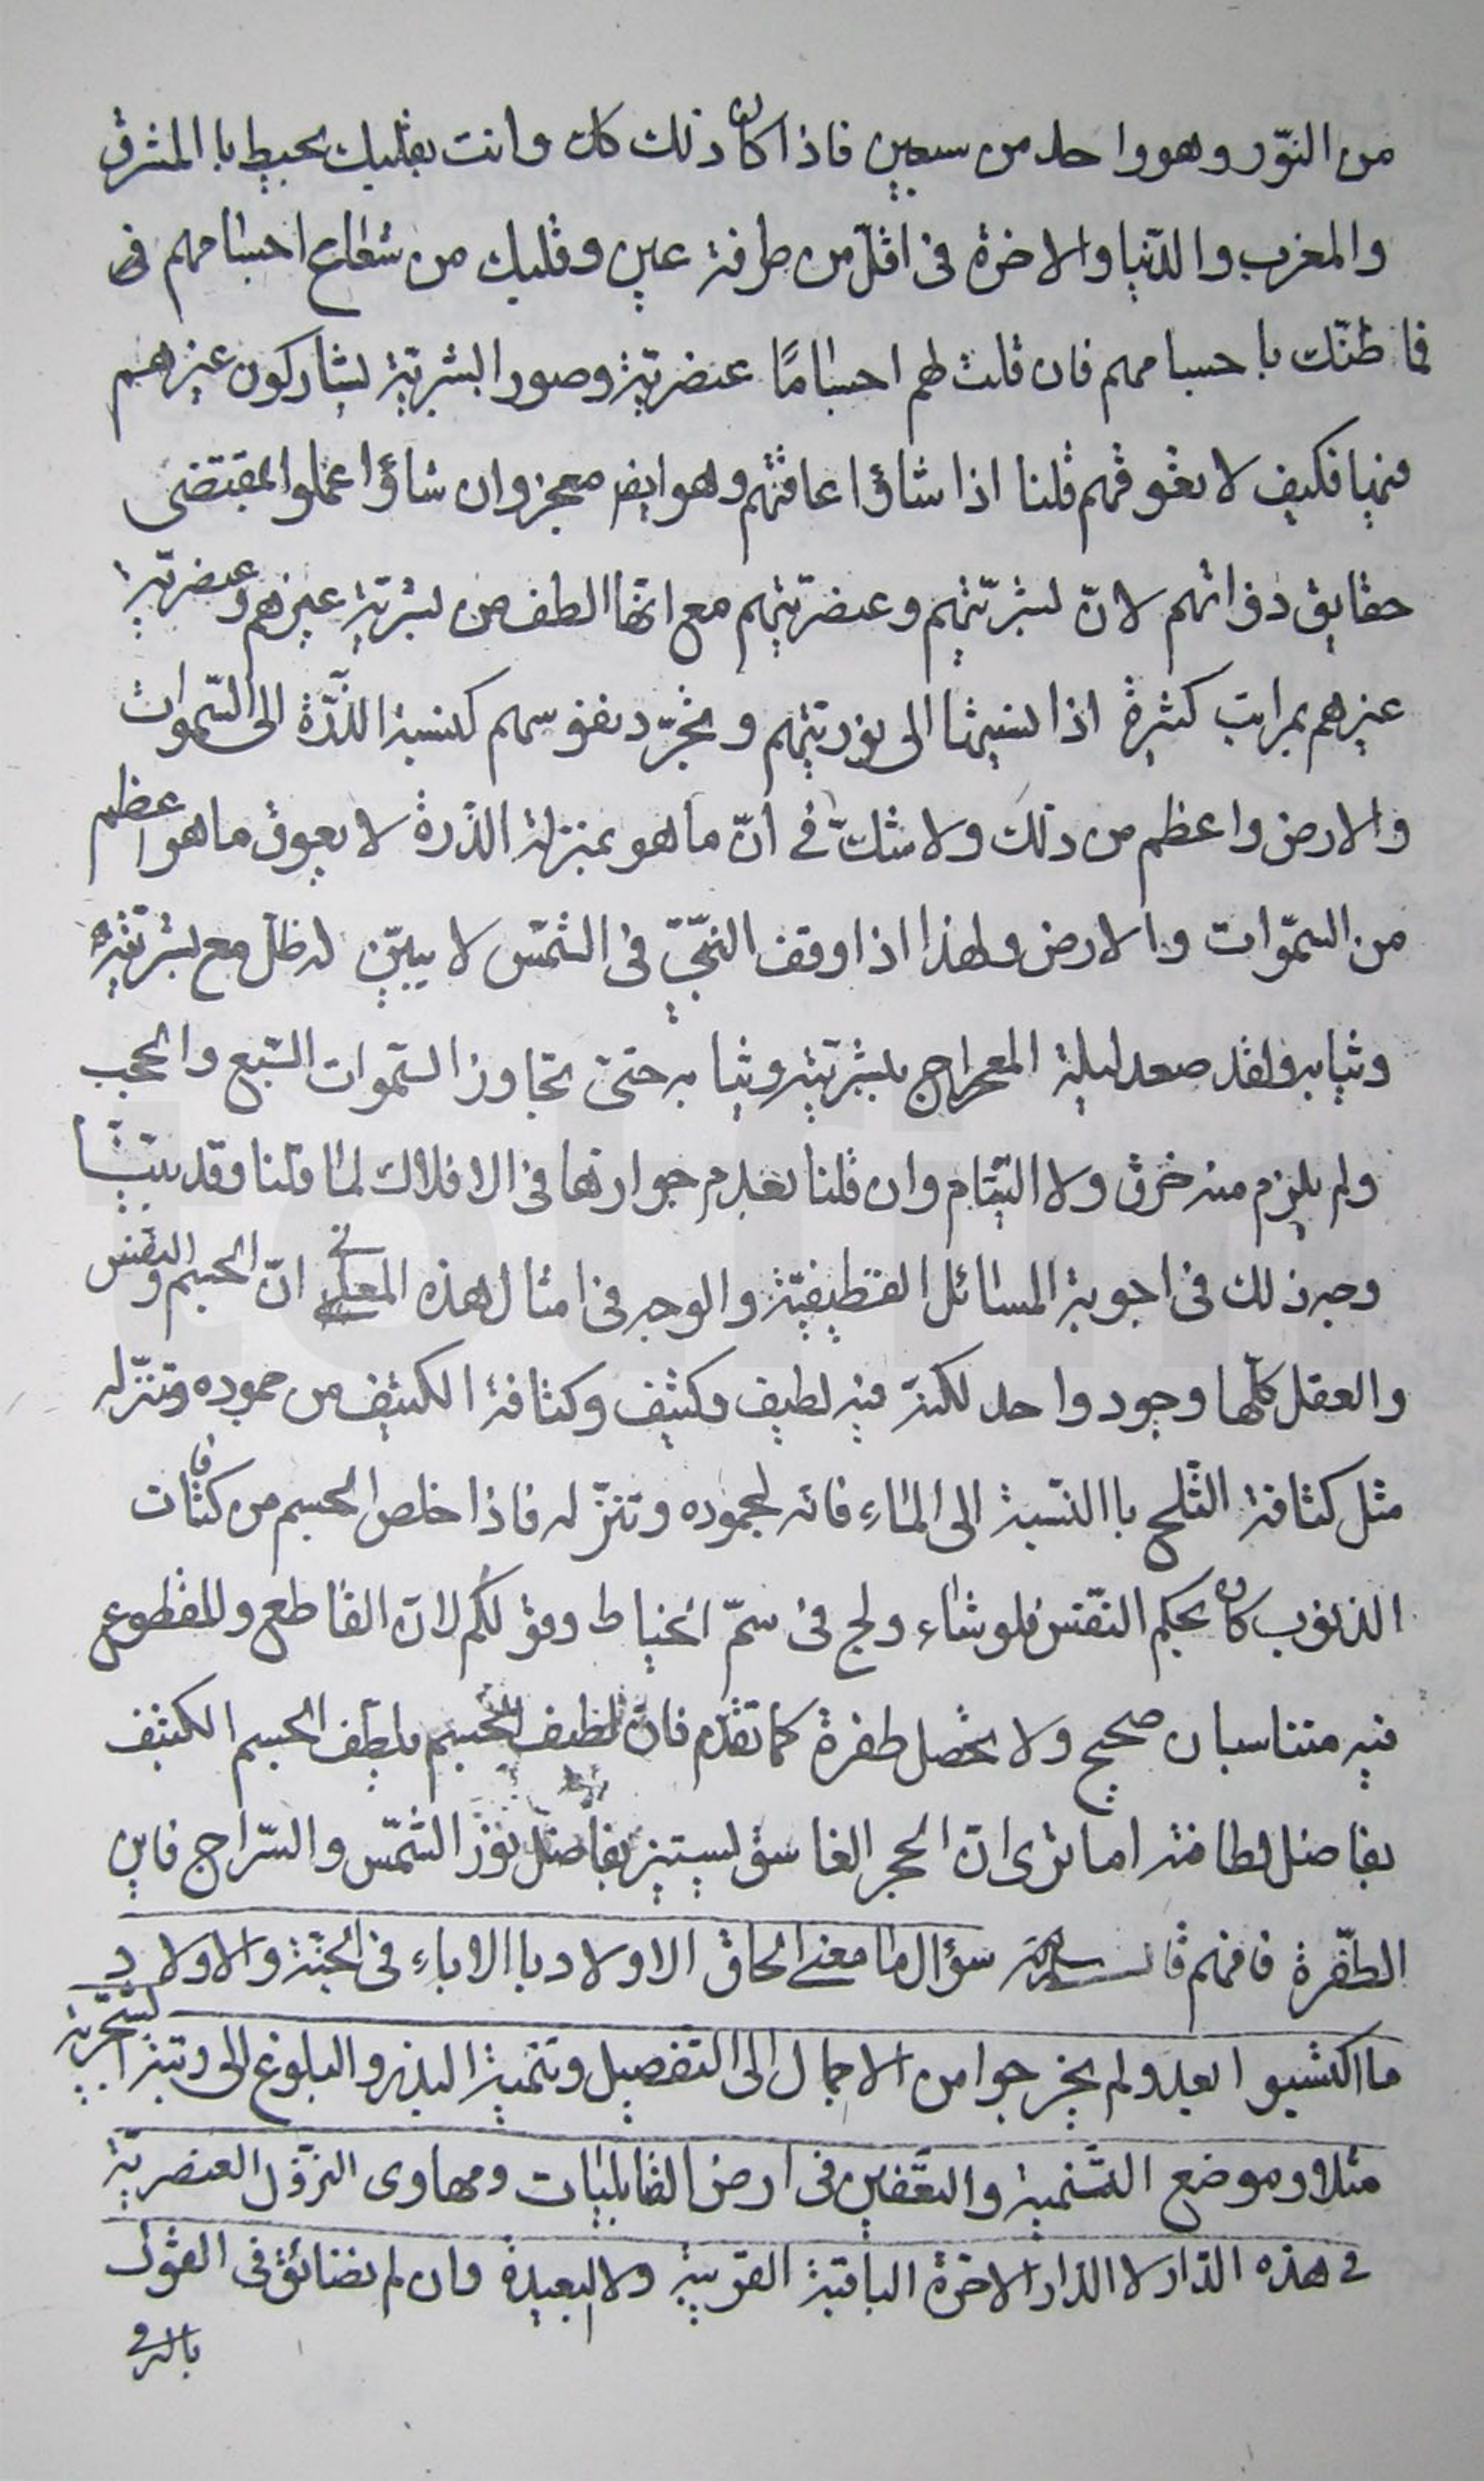 من النّور وهو واحد من سبعين فاذا كان ذلك كك وانت بقلبك تحيط با المشرق
والمغرب والدّنيا والاخرة فى اقلّ من طرفة عين وقلبك من شعاع اجسامهم فى
فما ظنّك با جسامهم فان قلت لهم اجسامًا عنصريّة وصور البشريّة يشاركون غيرهم
فيها فكيف لا تعوقهم قلنا اذا شاؤا عاقتهم وهو ايض معجز وان شاؤا عملوا بمقتضى
حقايق ذواتهم لانّ بشريّتهم وعنصريّتهم مع انّها الطف من بشريّة غيرهم وعنصريّة
غيرهم بمراتب كثيرة اذا نسبتها الى نوريّتهم وتجرّد نفوسهم كنسبة الذّرّة الى السّموات
والارض واعظم من ذلك ولا شكّ فى انّ ما هو بمنزلة الذّرة لا يعوق ما هو اعظم
من السمّوات والارض ولهذا اذا وقف النبّىّ فى الشمّس لا يبيّن له ظلّ مع بشريّته
وثيابه ولقد صعد ليلة المعراج ببشريّته وثيابه حتىّ تجاوز السّموات السّبع والحجب
ولم يلزم منه خرق ولا التيام وان قلنا بعدم جوازها فى الافلاك لما قلنا وقد بيّنّا
وجه ذلك فى اجوبة المسائل القطيفيّة والوجه فى امثال هذه المعانى انّ الجسم والنفس
والعقل كلّها وجود واحد لكنّه فيه لطيف وكثيف وكثافة الكثيف من جموده وتنزّله
مثل كثافة الثّلج با النّسبة الى الماء فانّه لجموده وتنزّله فاذا خلص الجسم من كثافات
الذنوب كان بحكم النّفس فلو شاء ولج فى سمّ الخياط وقولكم لانّ القاطع والمقطوع
فيه متناسبان صحيح ولا يحصل طفرة كما تقدّم فانّ لطيف الجسم يلطّف الجسم الكثيف
بفاضل لطافته اما ترى انّ الحجر الغاسق يستنير بفاضل نور الشمّس والسّراج فاين
الطّفرة فافهم قال سؤال ما معنى الحاق الاولاد با الاباء فى الجنّة والاولاد
ما اكتسبوا بعد ولم يخرجوا من الاجمال الى التفصيل وتنمية البذر والبلوغ الى رتبة
مثلا وموضع التّنمية والتعّفين فى ارض القابليات ومهاوى النزوّل العنصريّة
فى هذه الدّار لا الدّار الاخرة الباقية القريبة ولا البعيدة وان لم نضائق فى القول